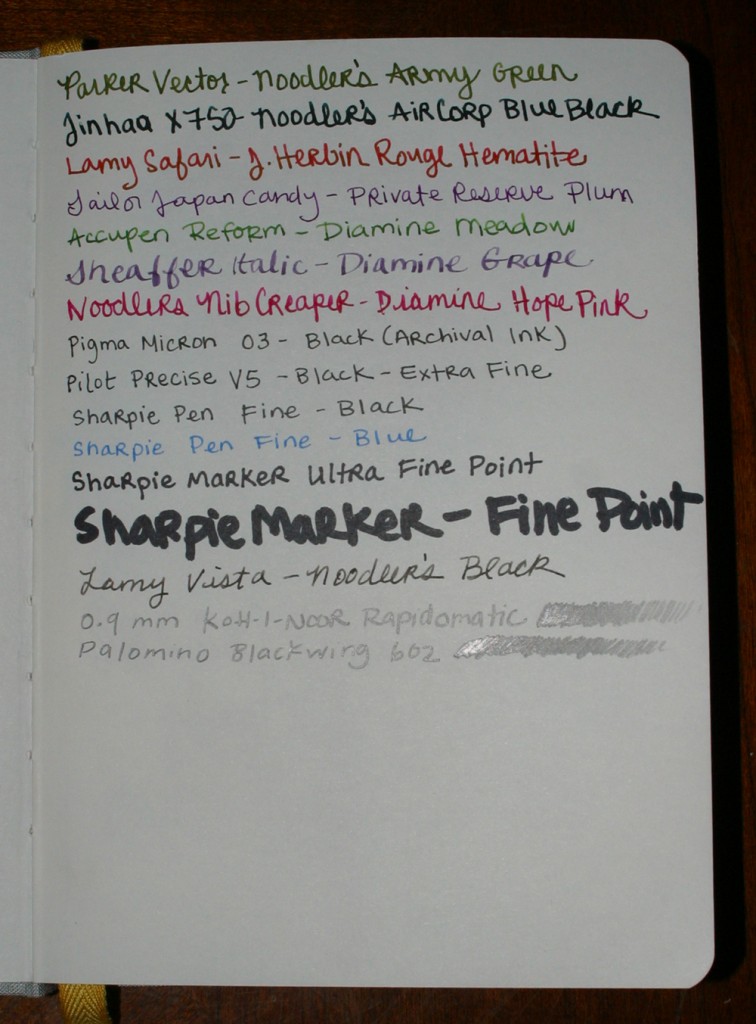 Parker Vector - Noodler's Army Green
Jinhao X750 - Noodler's Air Corp Blue Black
Lamy Safari - J. Herbin Rouge Hematite
Sailor Japan Candy - Private Reserve Plum
Accupen Reform - Diamine Meadow
Sheaffer Italic - Diamine Grape
Noodlers Nib Creaper - Diamine Hope Pink
Pigma Micron 03 - Black (Archival Ink)
Pilot Precise V5 - Black - Extra Fine
Sharpie Pen Fine - Black
Sharpie Pen Fine - Blue
Sharpie Marker Ultra Fine Point
Sharpie Marker - Fine Point
Lamy Vista - Noodler's Black
0.9 mm Koh-I-Noor Rapidomatic
Palomino Blackwing 602